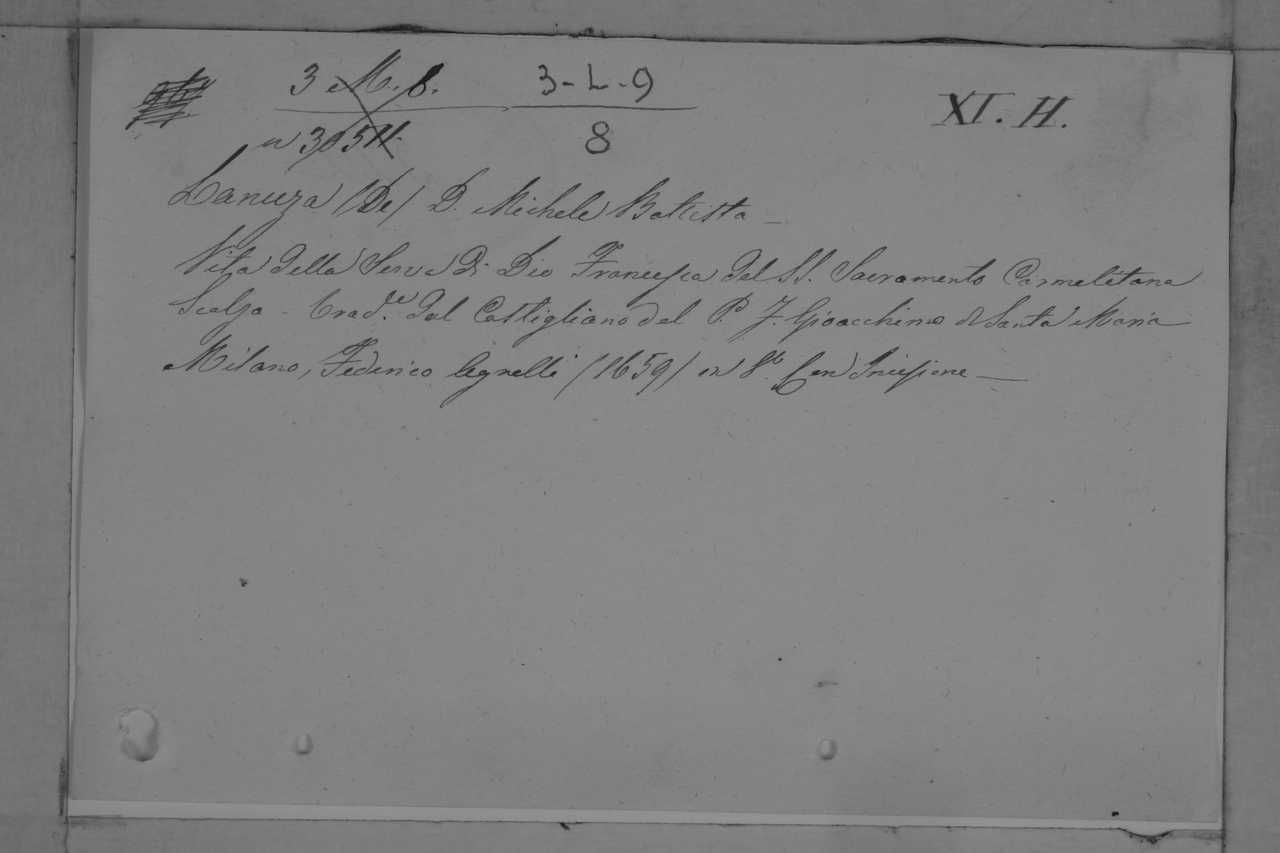 3 M. 6. 3-L-9 XI. H.
8
Lanuza (De) D. Michele Battista
Vita della Serva di Dio Francesca del SS. Sacramento Carmelitana
Scalza - Trad.e dal Castigliano del P. F. Gioacchino di Santa Maria
Milano, Federico Agnelli (1659) in 8º Con Incisione